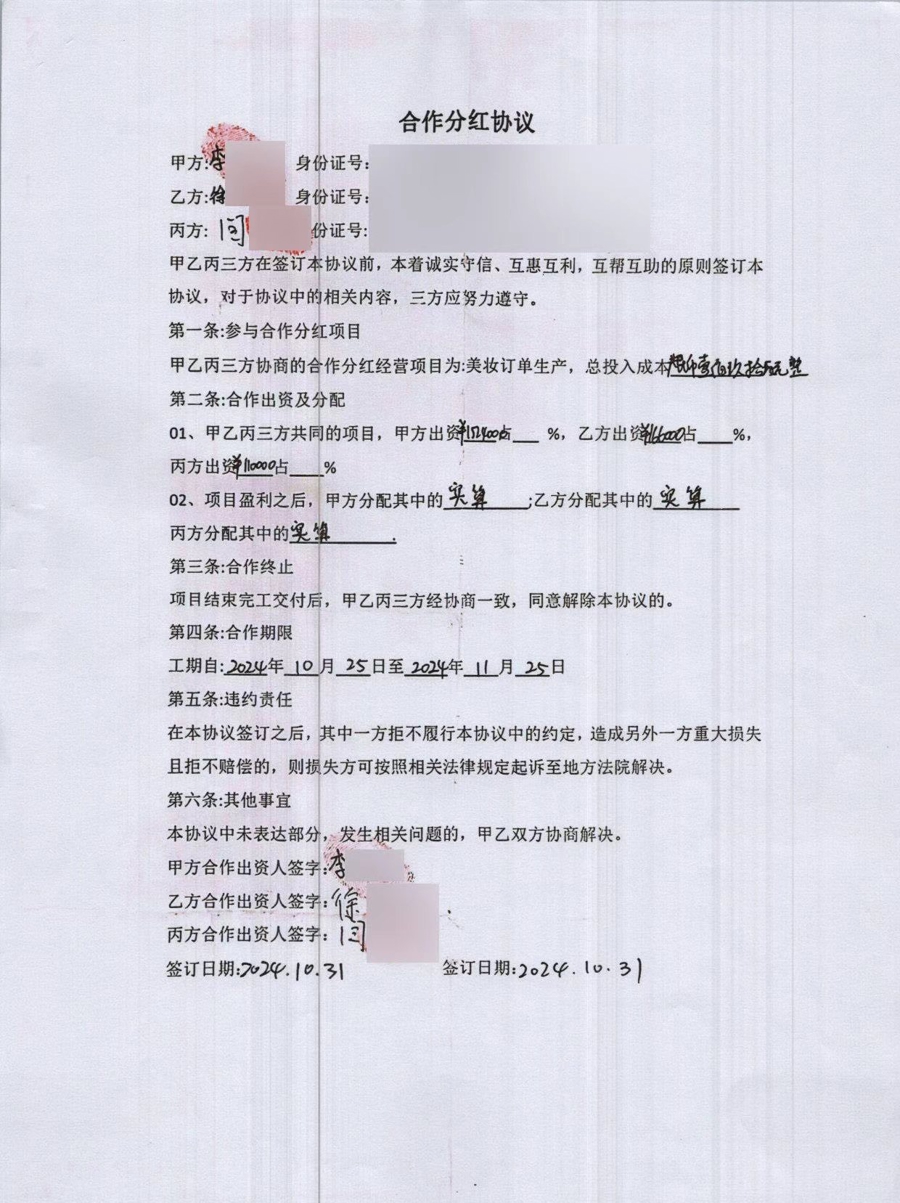 合作分红协议
甲方:李 身份证号:
乙方:徐 身份证号:
丙方: 闫 份证号:
甲乙丙三方在签订本协议前，本着诚实守信、互惠互利，互帮互助的原则签订本
协议，对于协议中的相关内容，三方应努力遵守。
第一条:参与合作分红项目
甲乙丙三方协商的合作分红经营项目为:美妆订单生产，总投入成本
第二条:合作出资及分配
01、甲乙丙三方共同的项目，甲方出资¥152400占___ %，乙方出资¥166000占____%，
丙方出资¥110000占____%
02、项目盈利之后，甲方分配其中的 实算 ;乙方分配其中的 实算
丙方分配其中的实算 .
第三条:合作终止
项目结束完工交付后，甲乙丙三方经协商一致，同意解除本协议的。
第四条:合作期限
工期自:2024年 10 月 25日至 2024年 11 月 25日
第五条:违约责任
在本协议签订之后，其中一方拒不履行本协议中的约定，造成另外一方重大损失
且拒不赔偿的，则损失方可按照相关法律规定起诉至地方法院解决。
第六条:其他事宜
本协议中未表达部分，发生相关问题的，甲乙双方协商解决。
甲方合作出资人签字:李
乙方合作出资人签字:徐
丙方合作出资人签字: 闫
签订日期:2024.10.31 签订日期:2024.10.31